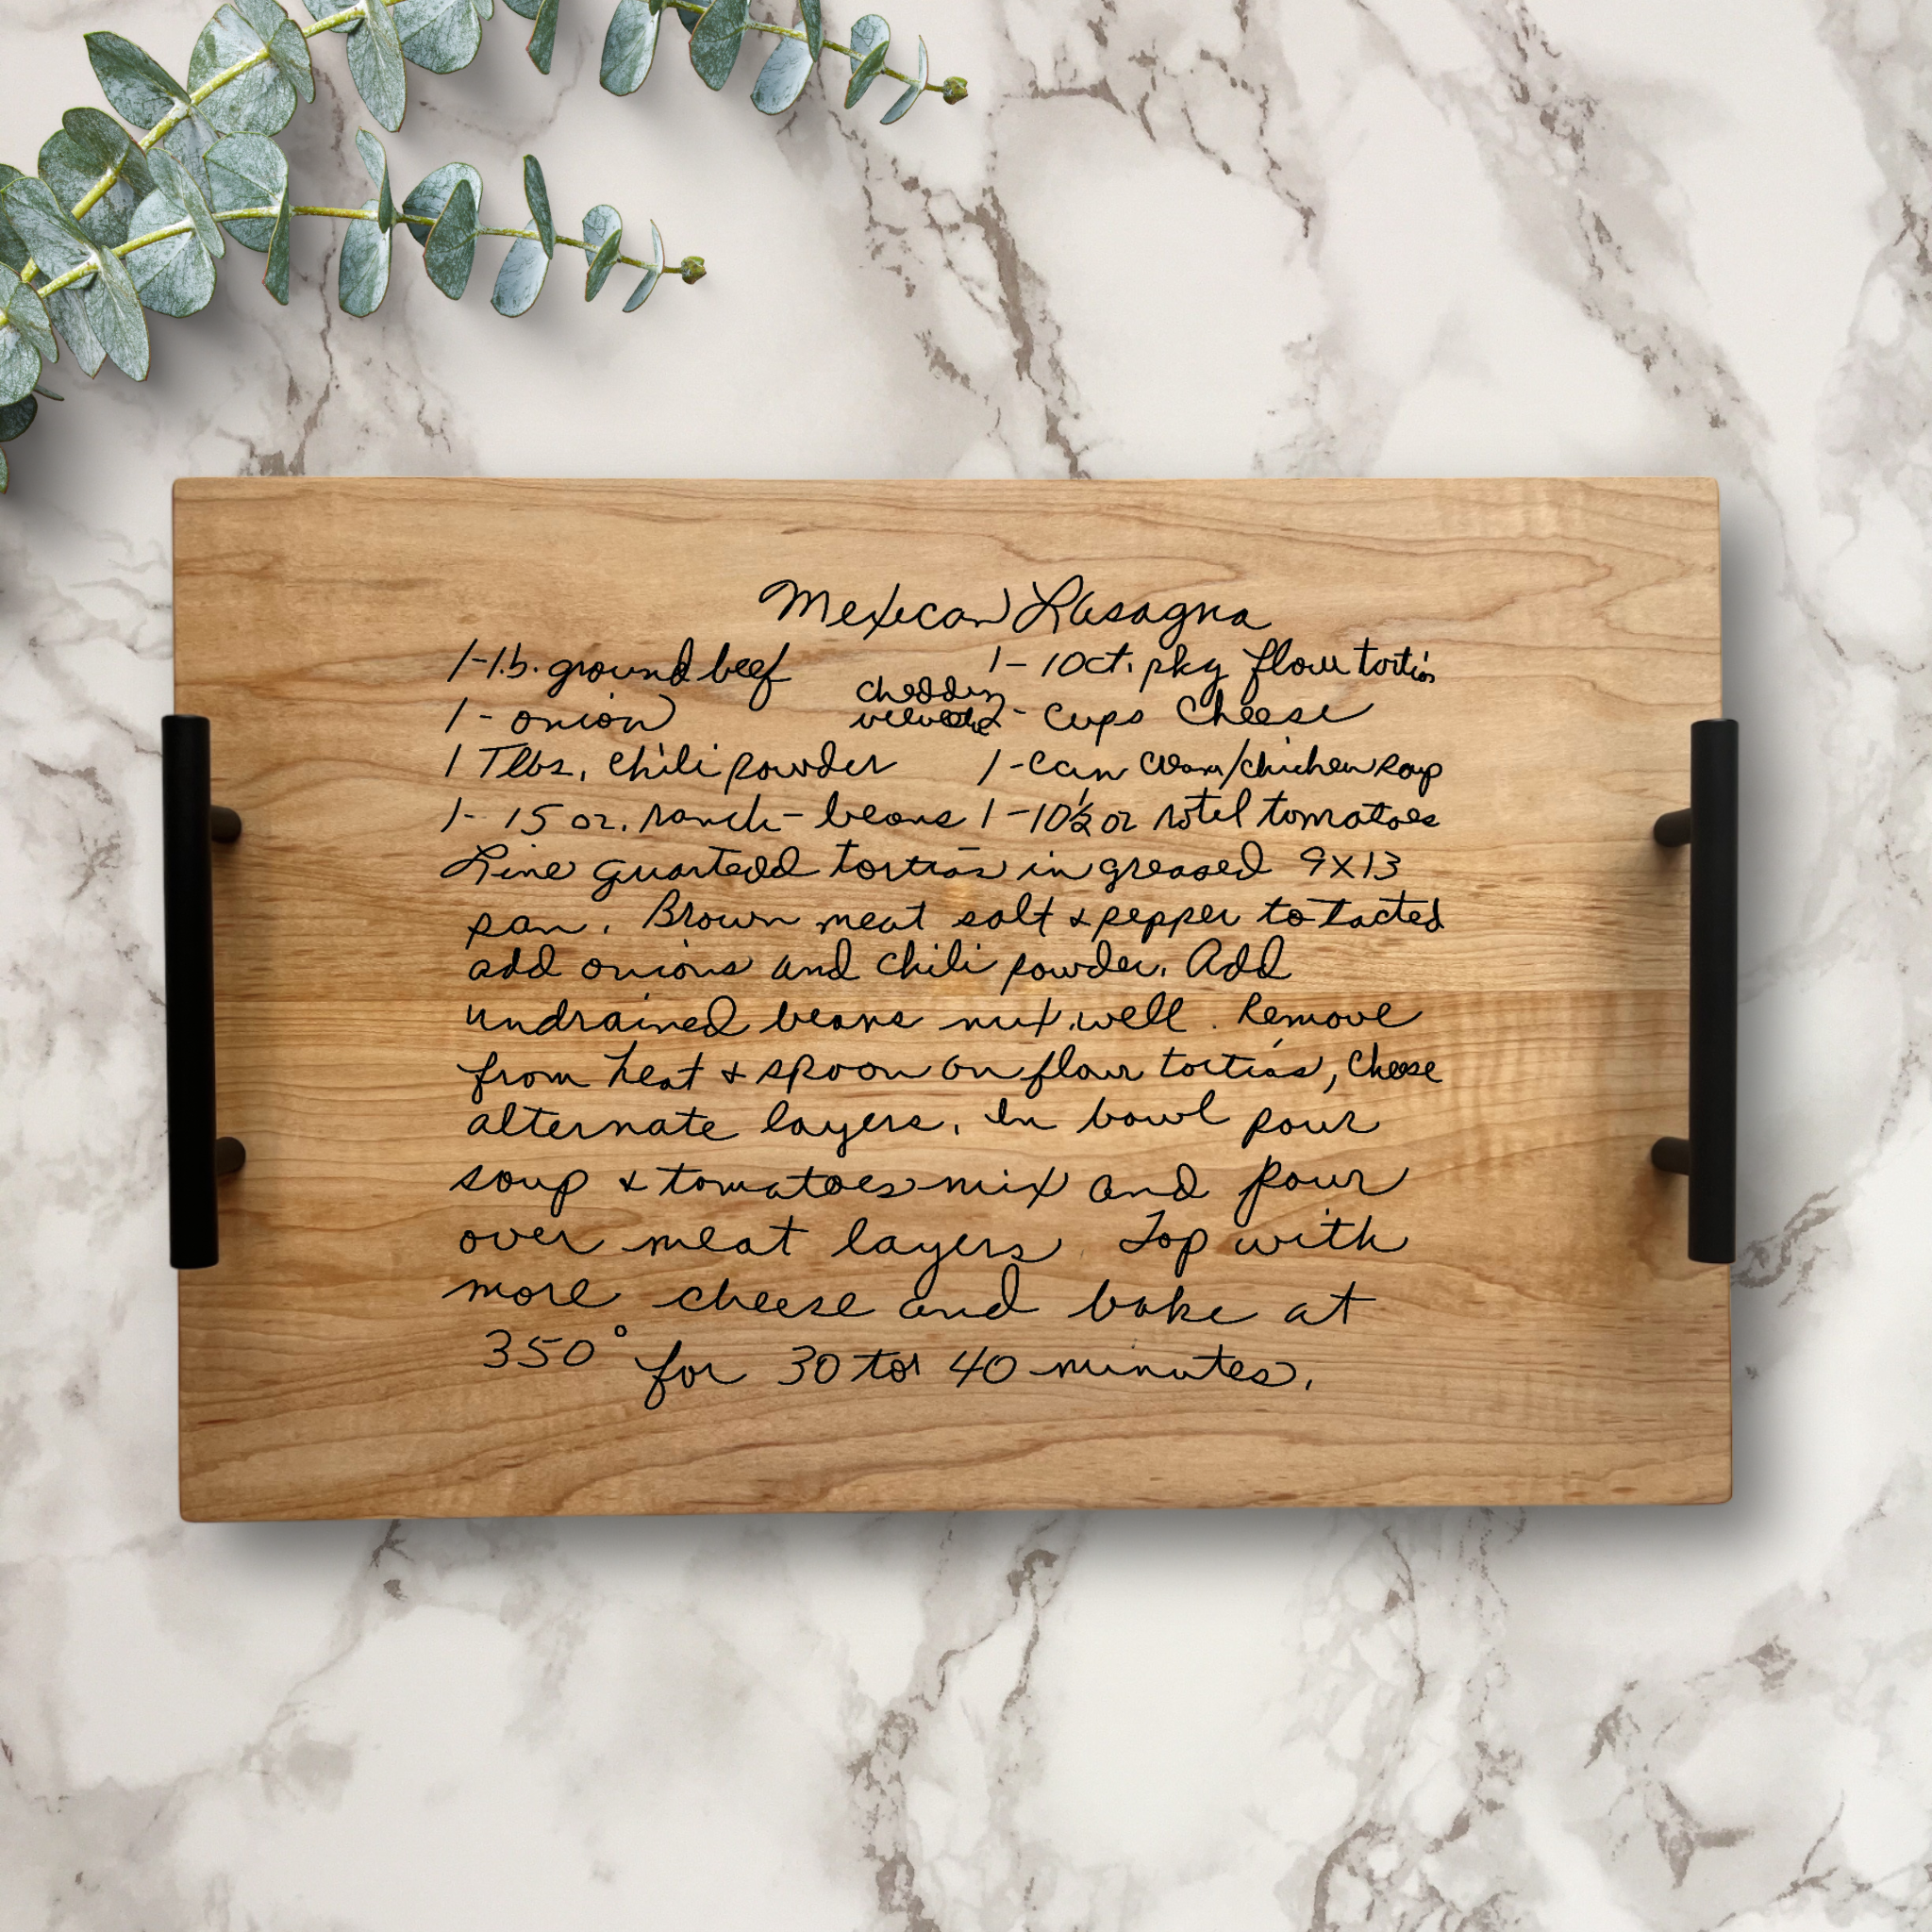 Mexican Lasagna
1-lb. ground beef 1- 10ct. pkg flour tortias
1- onion cheddar velveeta 2- cups cheese
1 Tlbs. chili powder 1-can cream/chicken soup
1- 15 oz. ranch-beans 1-10½ oz rotel tomatoes
Line quarted tortias in greased 9x13
pan. Brown meat salt & pepper to tasted
add onions and chili powder. Add
undrained beans mix well. Remove
from heat & spoon on flour tortias, cheese
alternate layers. In bowl pour
soup & tomatoes mix and pour
over meat layers Top with
more cheese and bake at
350° for 30 to 40 minutes.